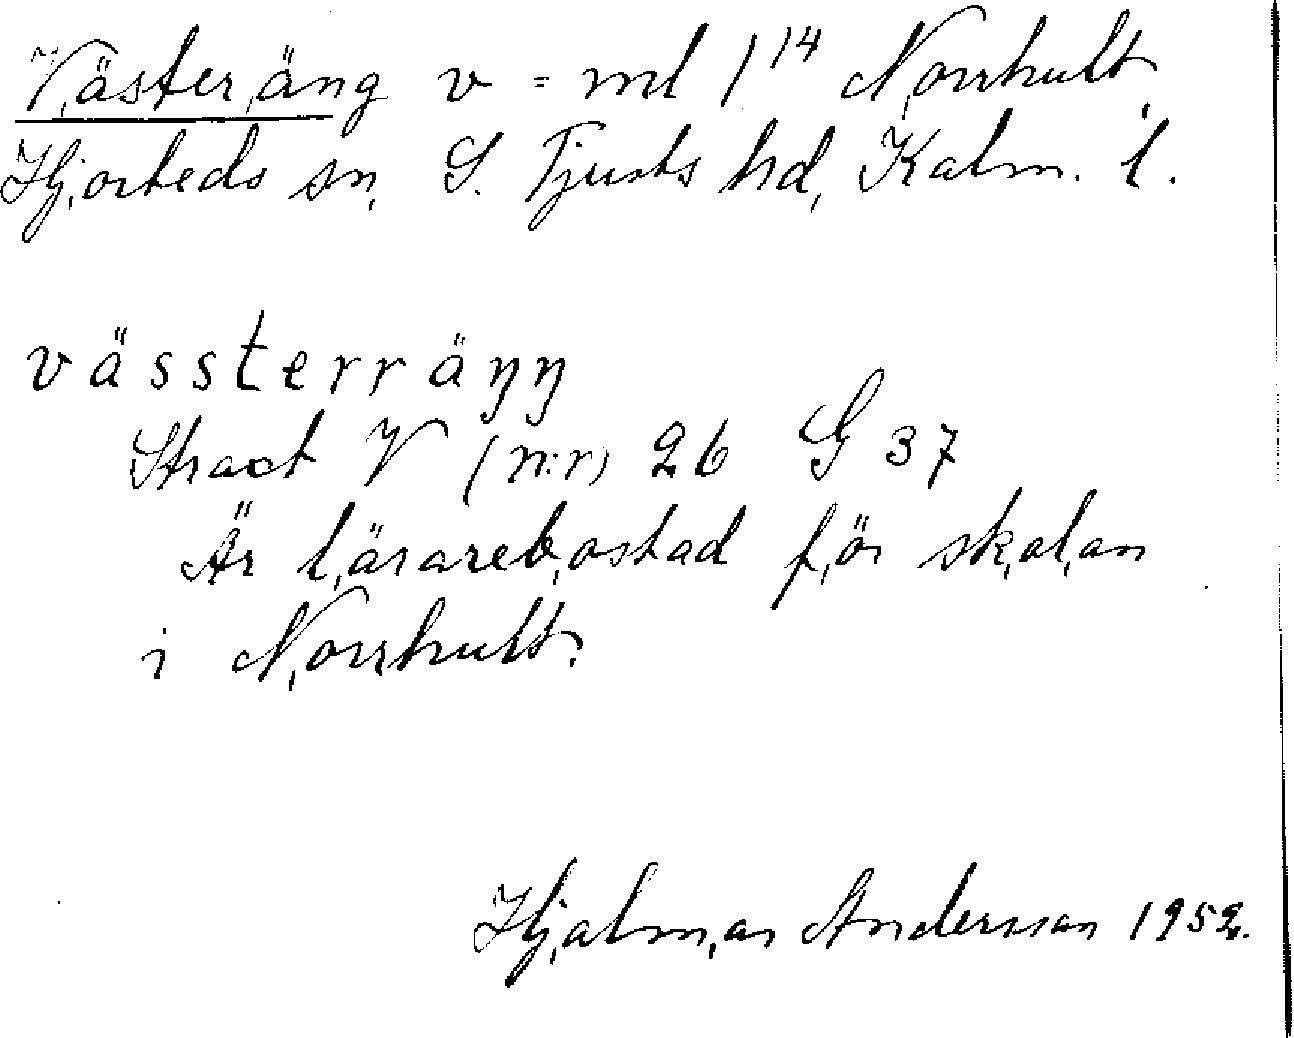 Västeräng v = ml 1¹⁴ Norrhult,
Hjorteds sn, S. Tjusts hd, Kalm. l.
vässterräŋŋ
Strax V (n:r) 26 G 37
Är lärarebostad för skolan
i Norrhult.
Hjalmar Andersson 1952.